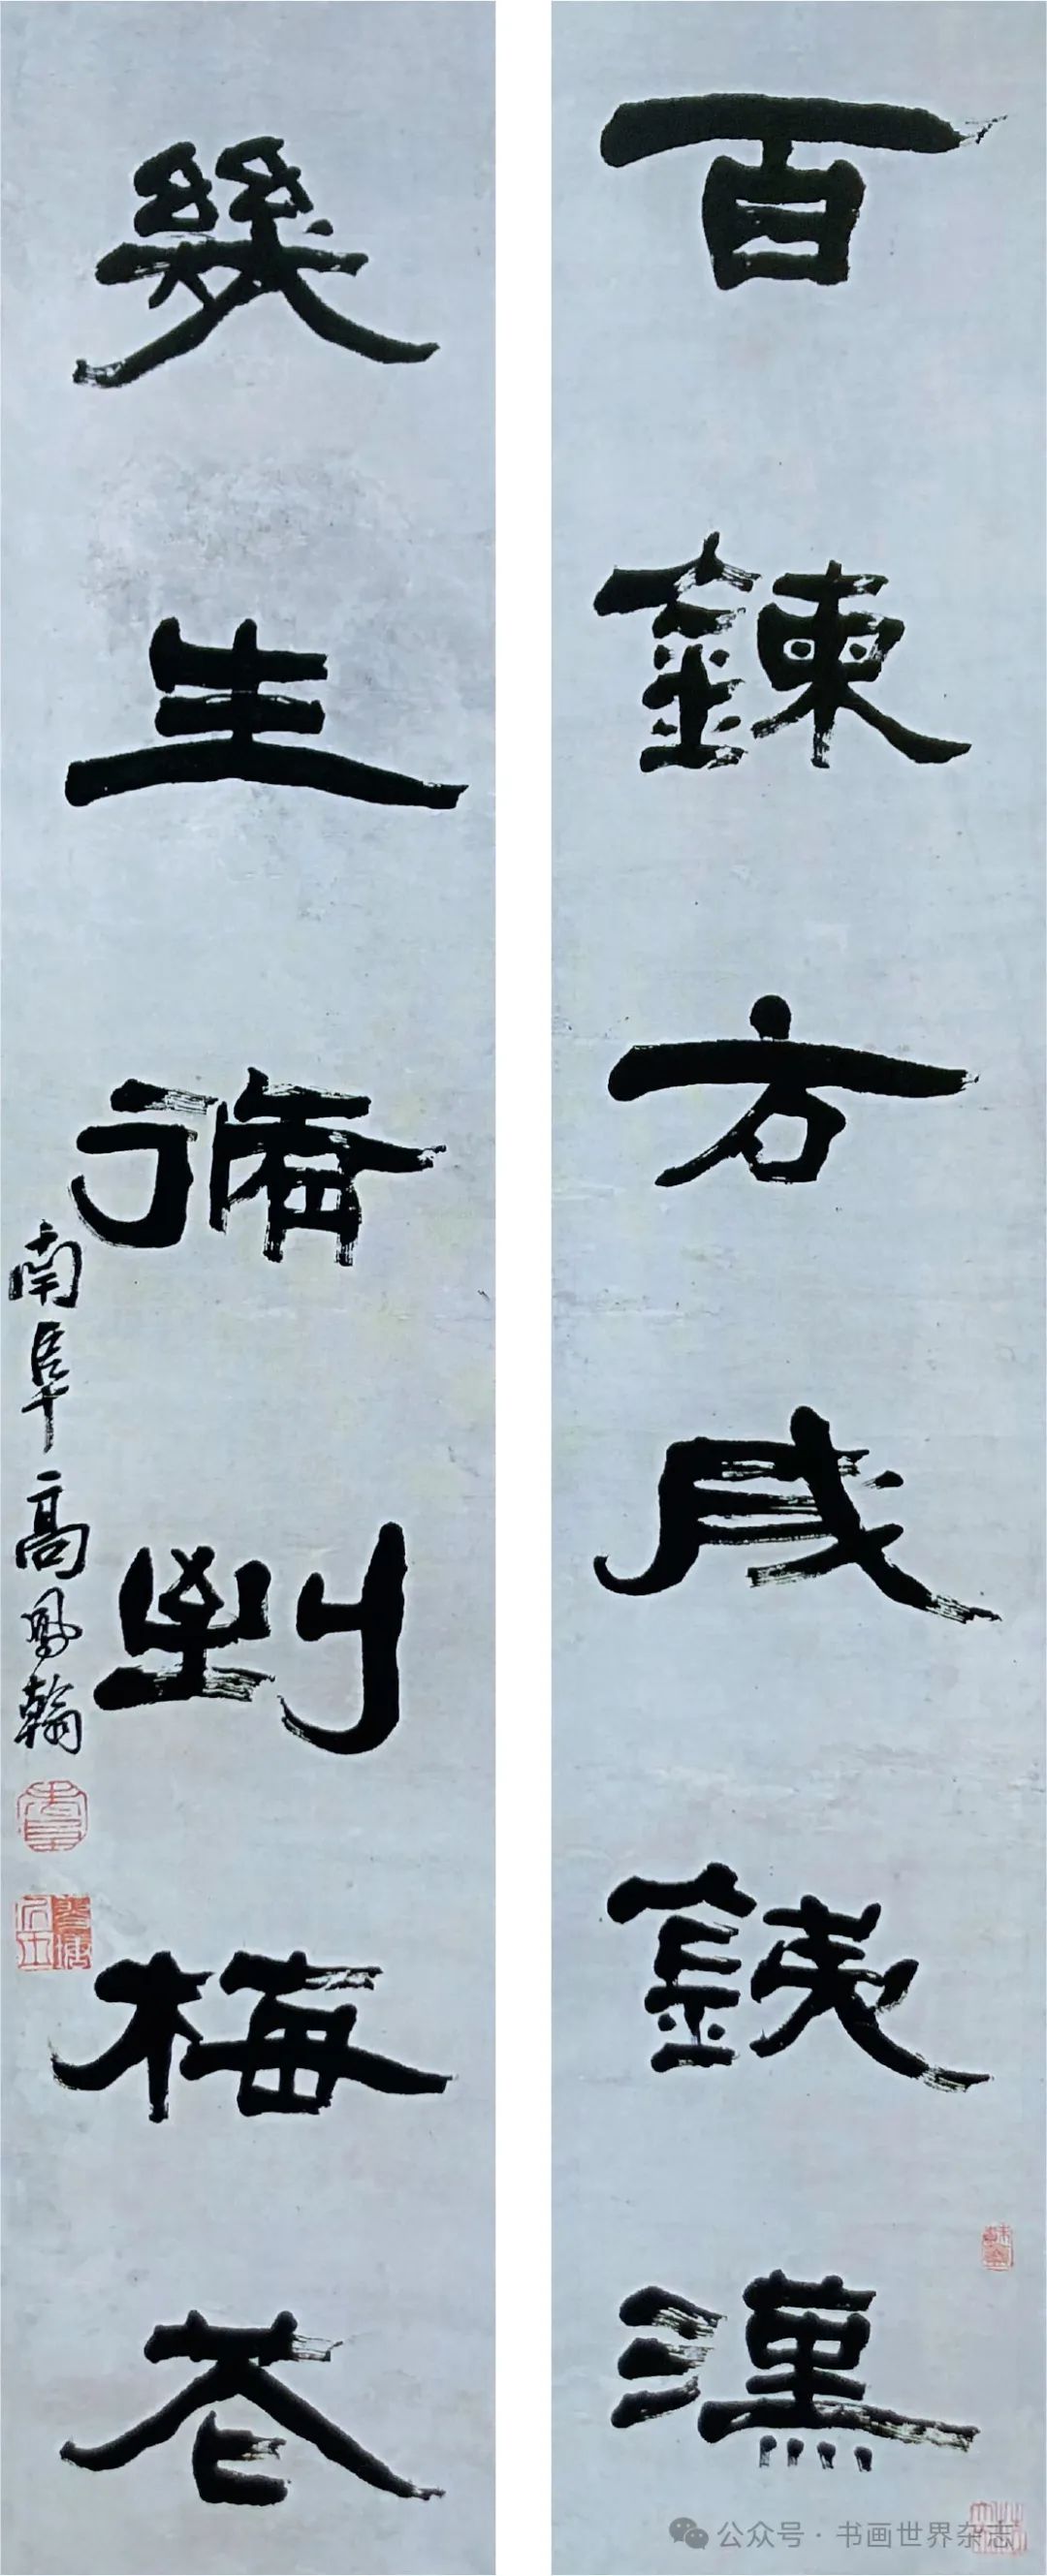 百鍊方成銕漢
幾生脩到梅花
南阜高鳳翰
公众号 · 书画世界杂志